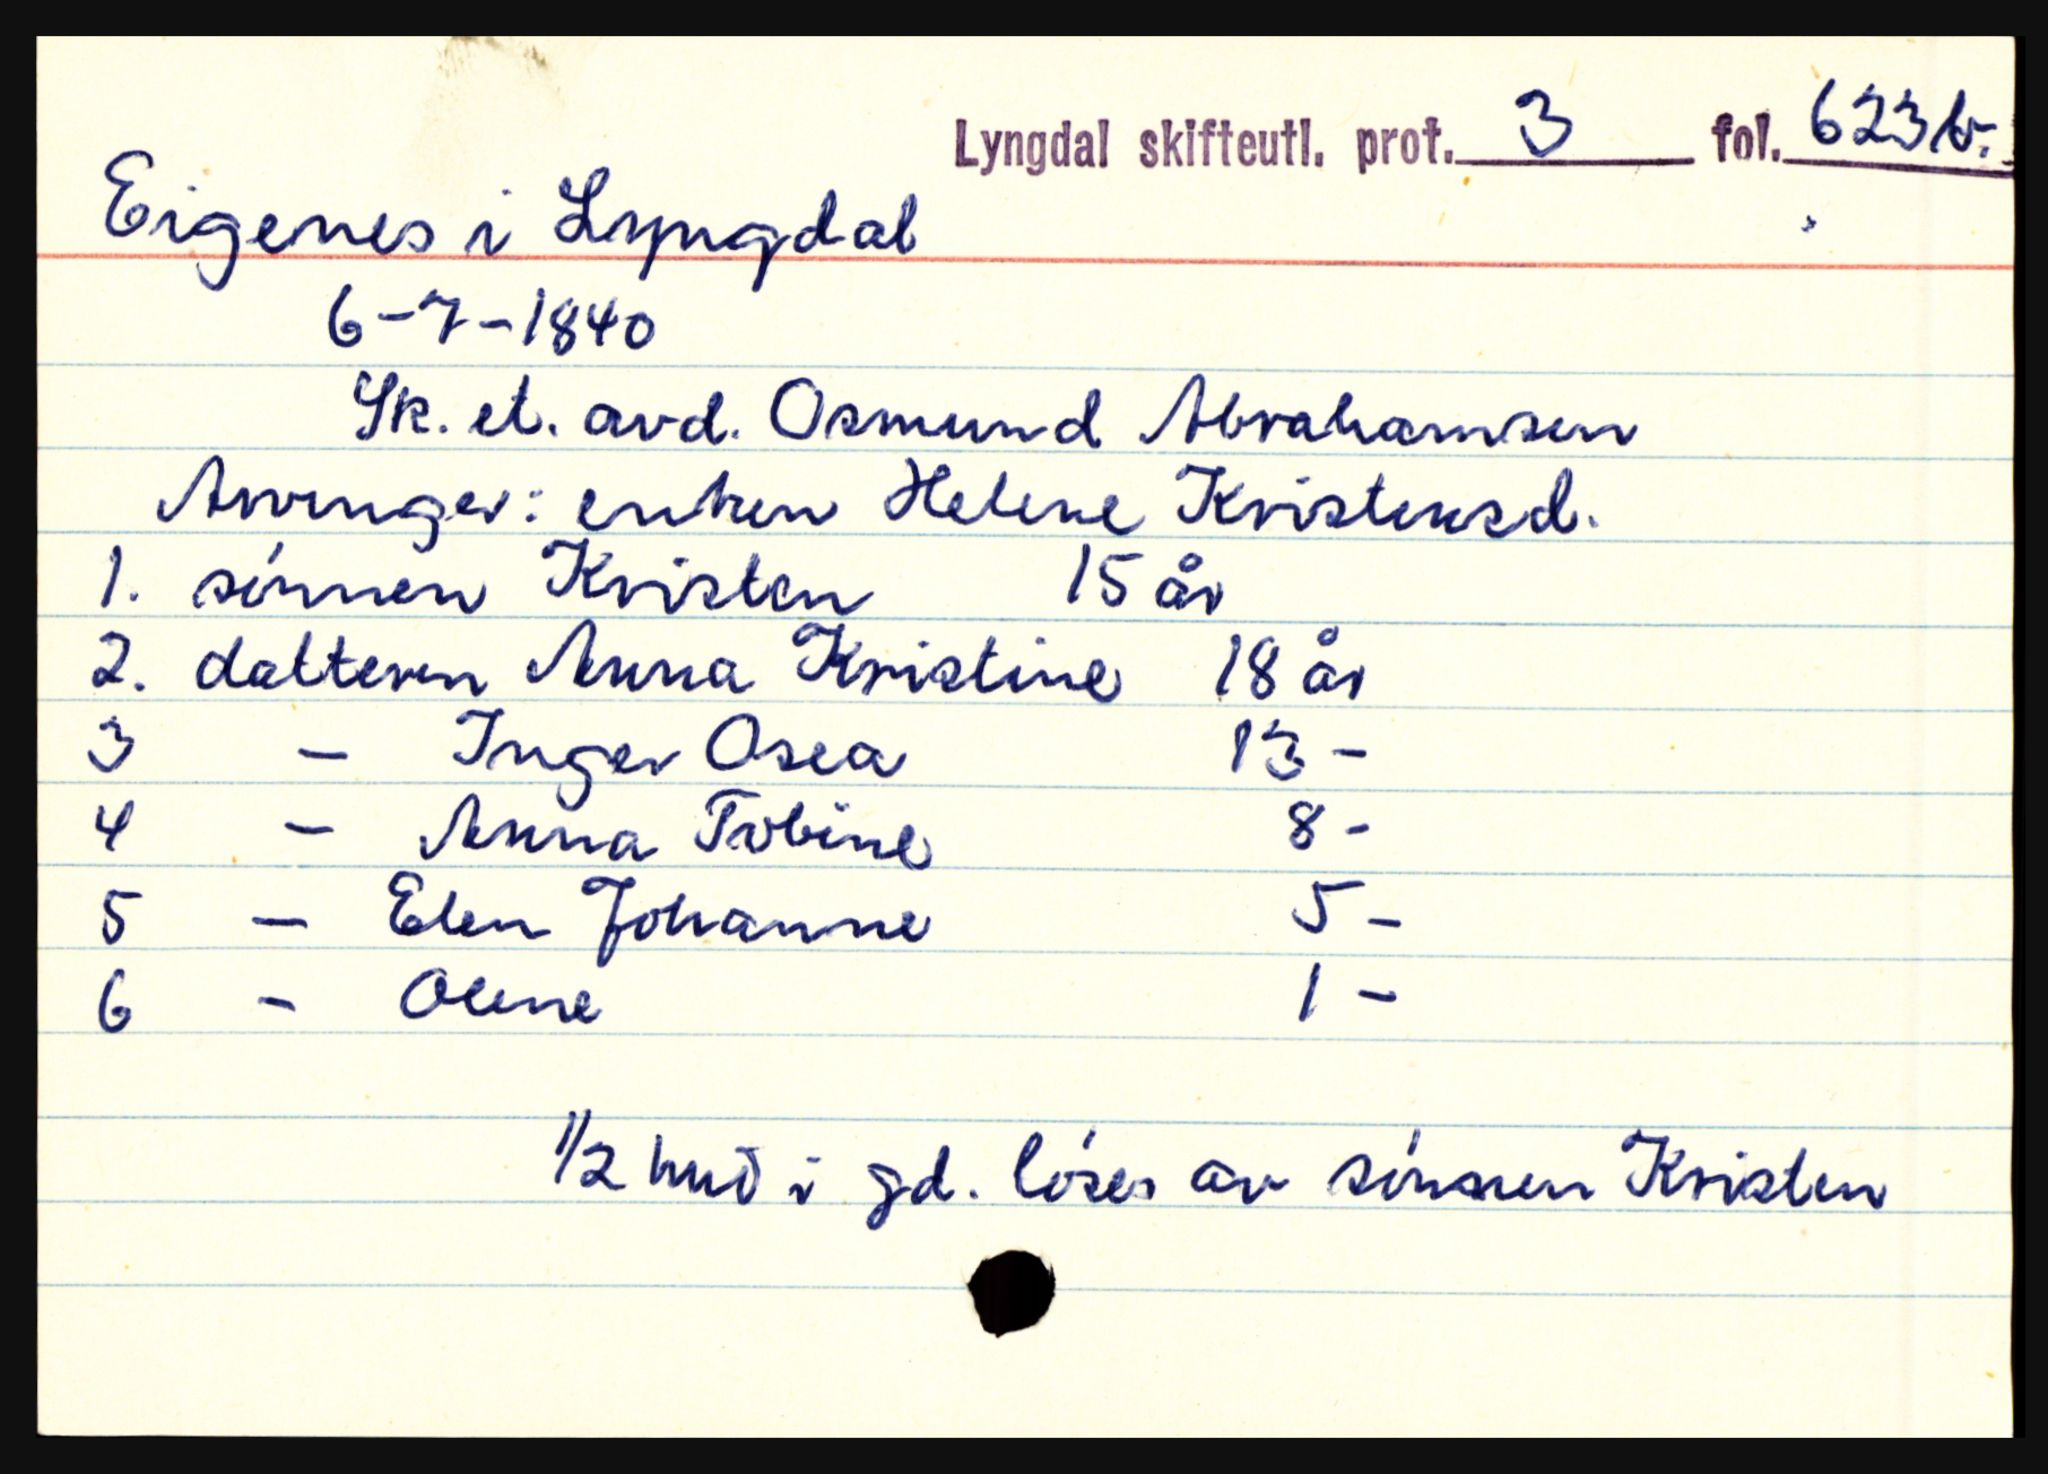 Lyngdal skifteutl. prot. 3 fol. 623b.
Eigenes i Lyngdal
6-7-1840
Sk. et. avd. Osmund Abrahamsen
Arvinger: enken Helene Kristensd.
1. sønnen Kristen 15 år
2. datteren Anna Kristine 18 år
3 - Inger Osea 13 -
4 - Anna Tobine 8 -
5 - Elen Johanne 5 -
6 - Olene 1 -
1/2 hud i gd. løses av sønnen Kristen